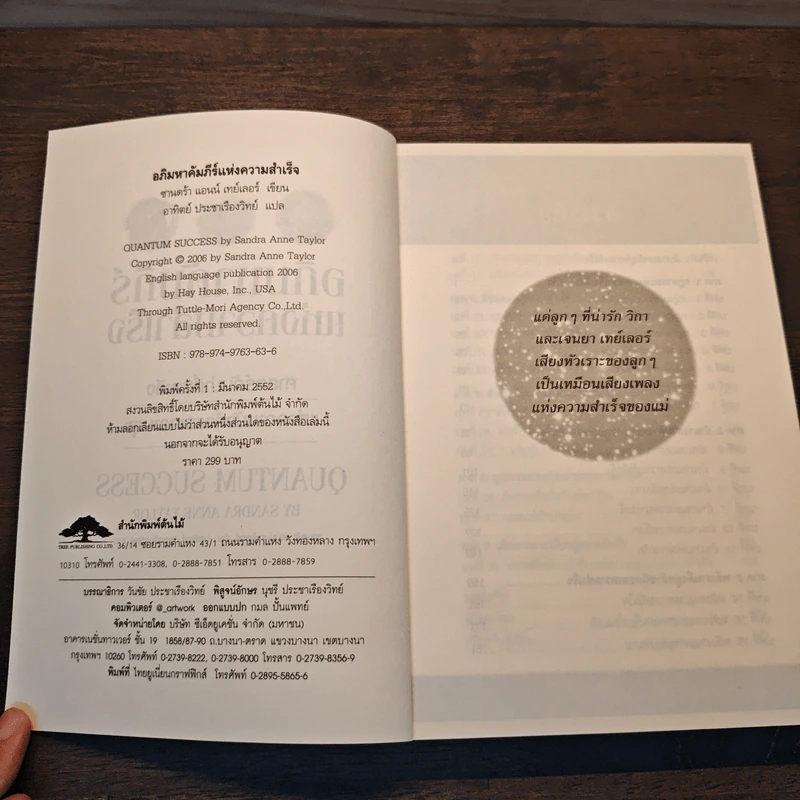 อภิมหาคัมภีร์แห่งความสำเร็จ
ซานดร้า แอนน์ เทย์เลอร์ เขียน
อาทิตย์ ประชาเรืองวิทย์ แปล
QUANTUM SUCCESS by Sandra Anne Taylor
Copyright © 2006 by Sandra Anne Taylor
English language publication 2006
by Hay House, Inc., USA
Through Tuttle-Mori Agency Co.,Ltd.
All rights reserved.
ISBN : 978-974-9763-63-6
พิมพ์ครั้งที่ 1 : มีนาคม 2552
สงวนลิขสิทธิ์โดยบริษัทสำนักพิมพ์ต้นไม้ จำกัด
ห้ามลอกเลียนแบบไม่ว่าส่วนหนึ่งส่วนใดของหนังสือเล่มนี้
นอกจากจะได้รับอนุญาต
ราคา 299 บาท
สำนักพิมพ์ต้นไม้
TREE PUBLISHING CO.,LTD.
36/14 ซอยรามคำแหง 43/1 ถนนรามคำแหง วังทองหลาง กรุงเทพฯ
10310 โทรศัพท์ 0-2441-3308, 0-2888-7851 โทรสาร 0-2888-7859
บรรณาธิการ วันชัย ประชาเรืองวิทย์ พิสูจน์อักษร นุชรี ประชาเรืองวิทย์
คอมพิวเตอร์ @_artwork ออกแบบปก กมล ปั้นแพทย์
จัดจำหน่ายโดย บริษัท ซีเอ็ดยูเคชั่น จำกัด (มหาชน)
อาคารเนชั่นทาวเวอร์ ชั้น 19 1858/87-90 ถ.บางนา-ตราด แขวงบางนา เขตบางนา
กรุงเทพฯ 10260 โทรศัพท์ 0-2739-8222, 0-2739-8000 โทรสาร 0-2739-8356-9
พิมพ์ที่ ไทยยูเนี่ยนกราฟฟิกส์ โทรศัพท์ 0-2895-5865-6
แด่ลูกๆ ที่น่ารัก วิกา
และเจนยา เทย์เลอร์
เสียงหัวเราะของลูกๆ
เป็นเหมือนเสียงเพลง
แห่งความสำเร็จของแม่